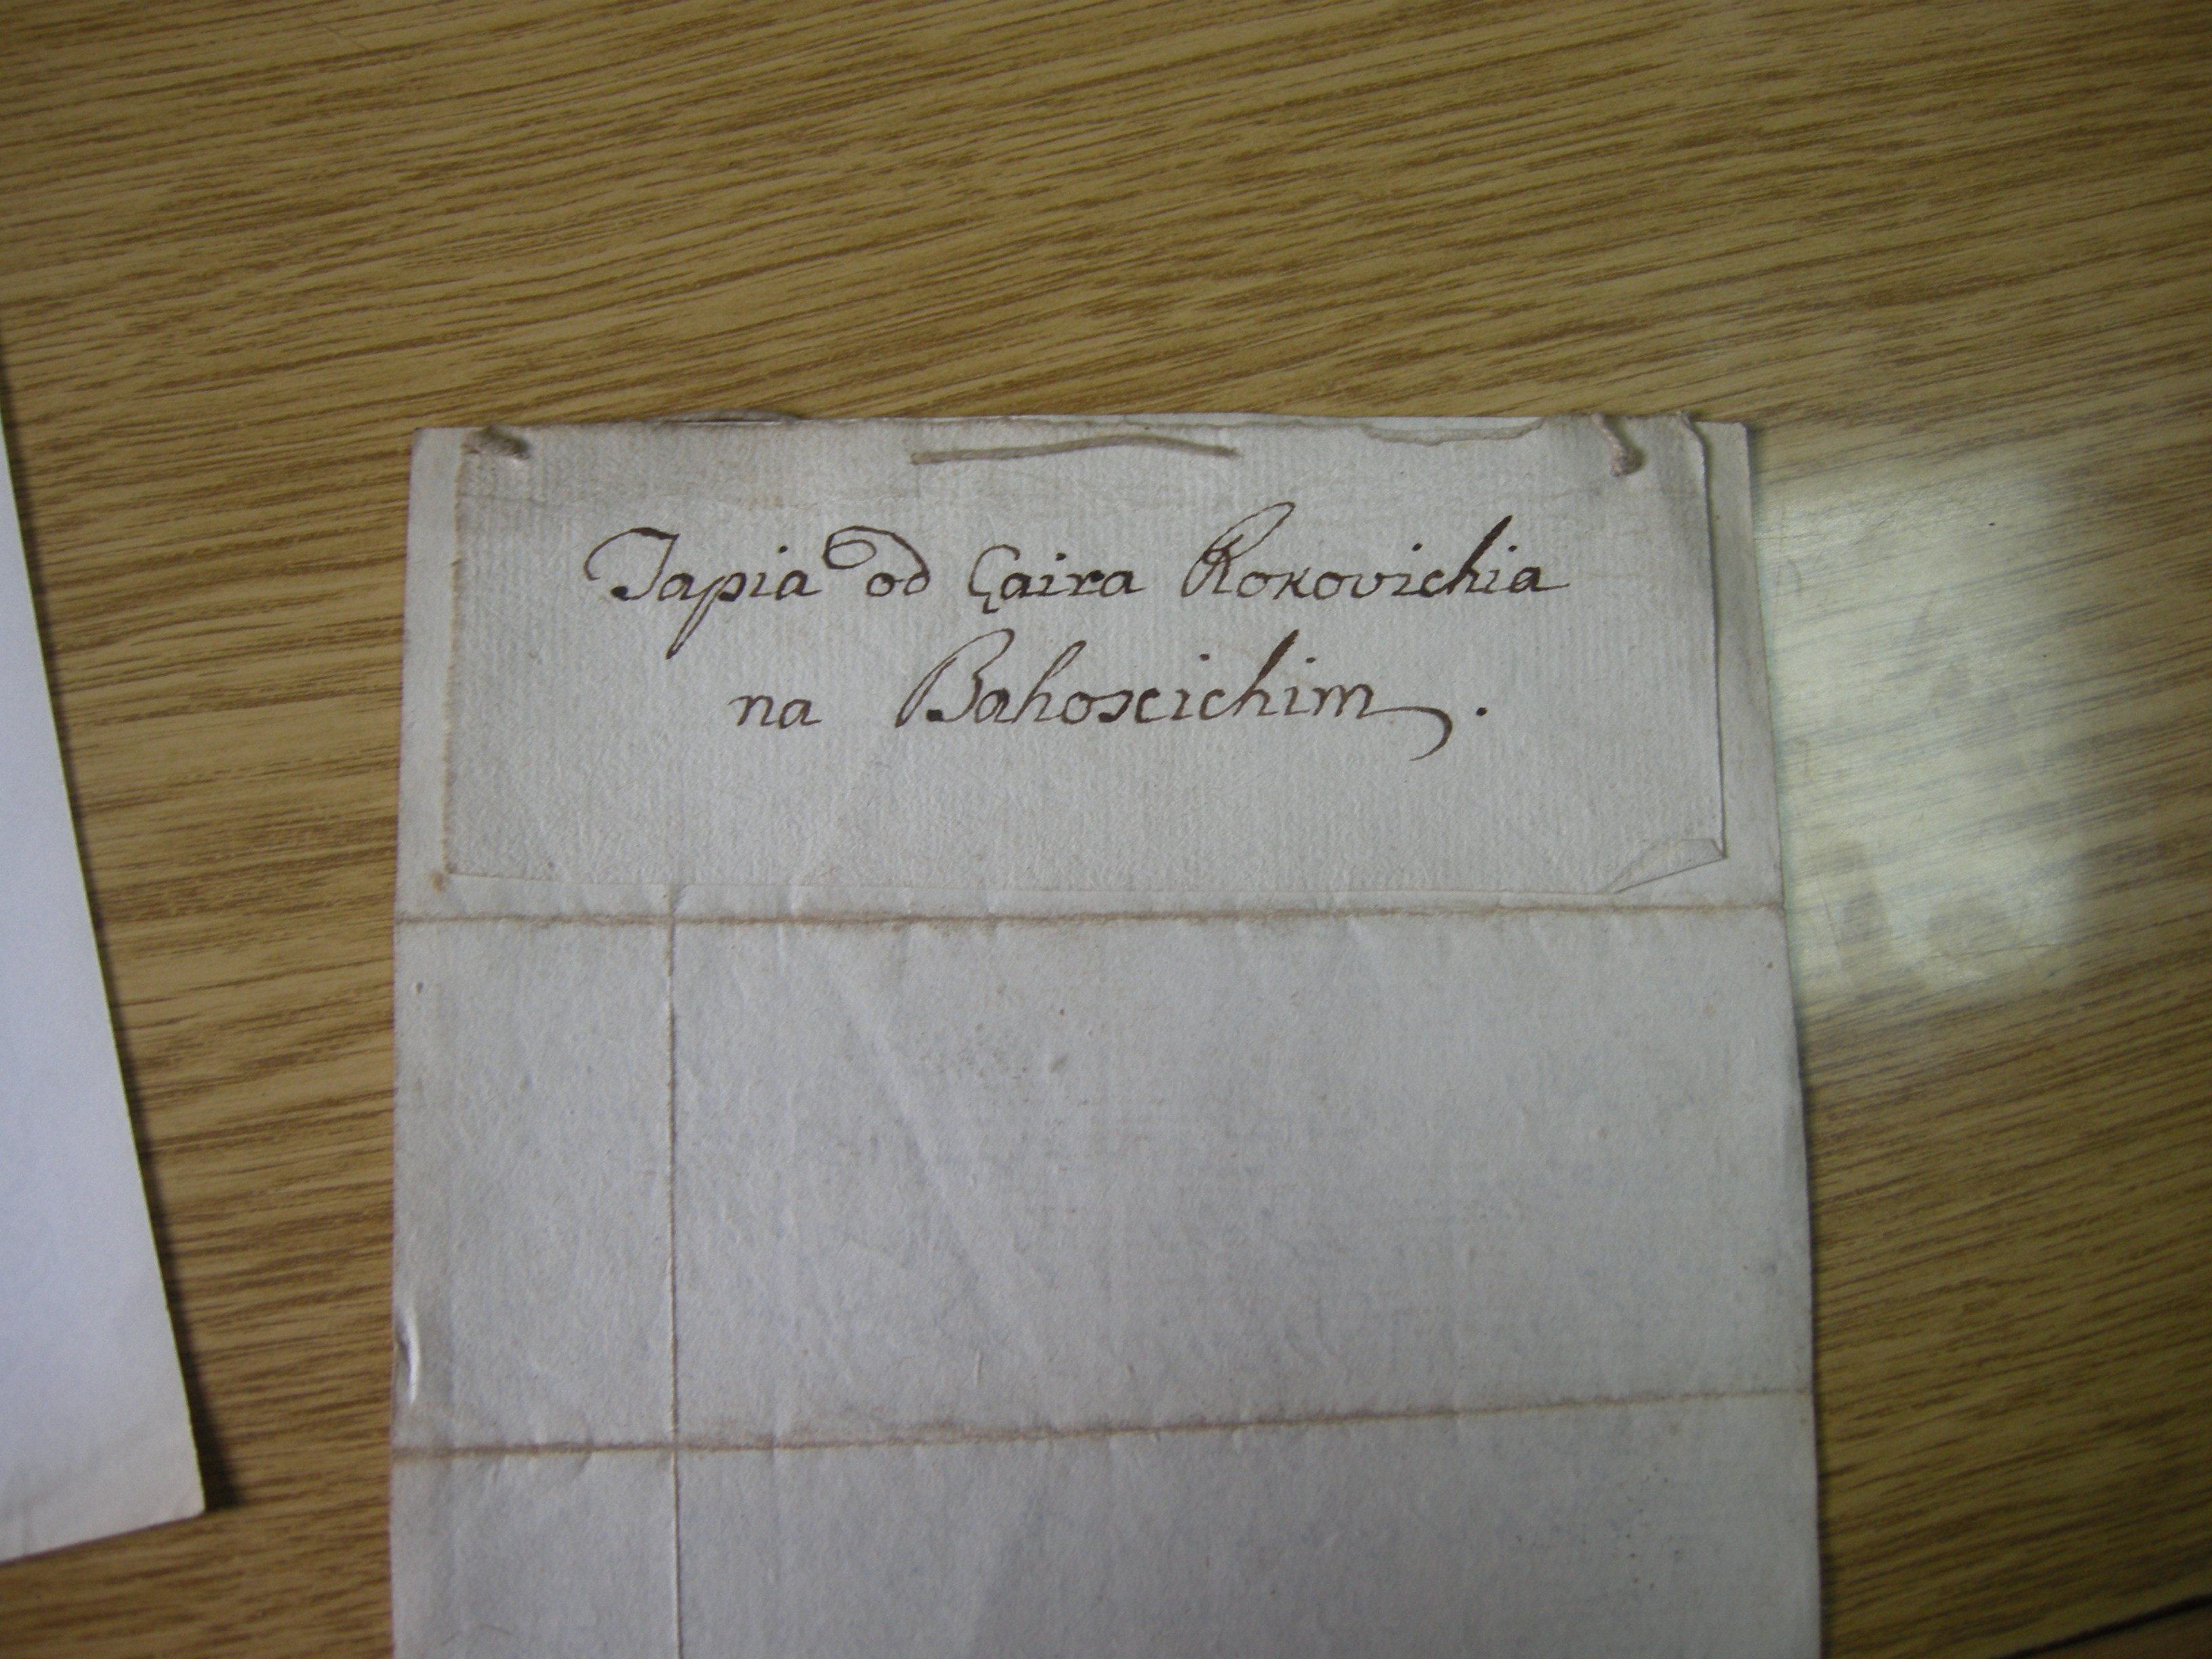 Tapia od Çaira Rokovichia
na Bahoscichim.